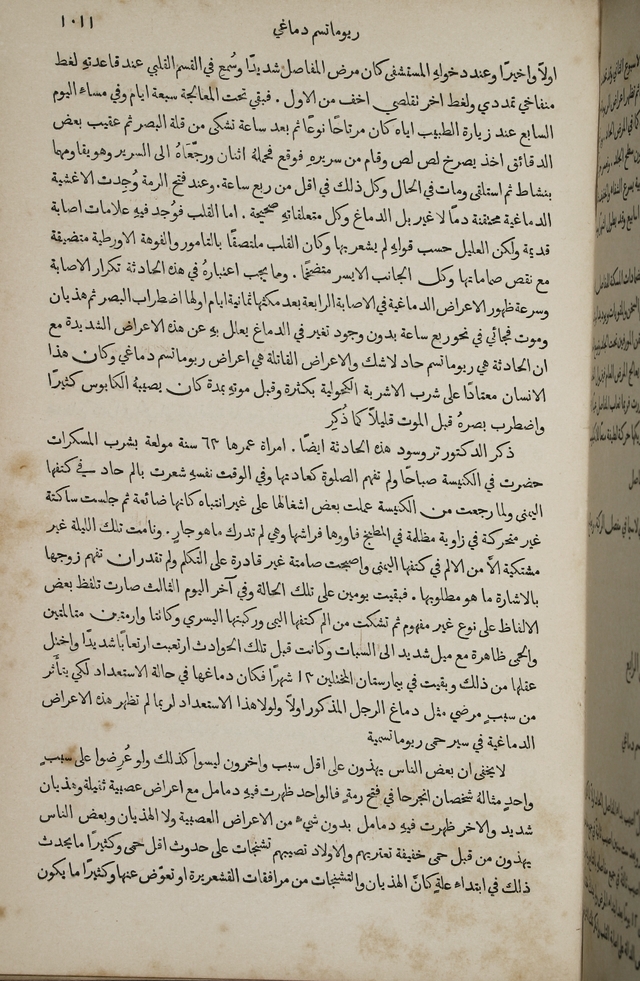 ريوماتسم دماغي ١٠١١
اولًا واخيرًا وعند دخولهِ المستشفى كان مرض المفاصل شديدًا وسُمِع في القسم القلبي عند قاعدتهِ لغط
منفاخي تمددي ولغط اخر تقلصي اخف من الاول . فبقي تحت المعالجة سبعة ايام وفي مساء اليوم
السابع عند زيارة الطبيب اياه كان مرتاحًا نوعًا ثم بعد ساعة تشكى من قلة البصر ثم عقيب بعض
الدقائق اخذ يصرخ لص لص وقام من سريرهِ فوقع فحملهُ اثنان ورجَّعاهُ الى السرير وهو يقاومها
بنشاط ثم استلقى ومات في الحال وكل ذلك في اقل من ربع ساعة . وعند فتح الرمة وُجِدت الاغشية
الدماغية محتقنة دمًا لا غير بل الدماغ وكل متعلقاتهِ صحيحة . اما القلب فوُجد فيهِ علامات اصابة
قديمة ولكن العليل حسب قولهِ لم يشعر بها وكان القلب ملتصقًا بالتامور والفوهة الاورطية متضيقة
مع نقص صماماتها وكل الجانب الايسر متضخمًا . وما يجب اعتبارهُ في هذه الحادثة تكرار الاصابة
وسرعة ظهور الاعراض الدماغية في الاصابة الرابعة بعد مكثها ثمانية ايام اولها اضطراب البصر ثم هذيان
وموت فجائي في نحو ربع ساعة بدون وجود تغير في الدماغ يعلل بهِ عن هذه الاعراض الشديدة مع
ان الحادثة هي ريوماتسم حاد لاشك والاعراض القاتلة هي اعراض ريوماتسم دماغي وكان هذا
الانسان معتادًا على شرب الاشربة الكحولية بكثرة وقبل موتهِ بمدة كان يصيبهُ الكابوس كثيرًا
واضطرب بصرهُ قبل الموت قليلًا كما ذُكِر
ذكر الدكتور تروسود هذه الحادثة ايضًا . امراة عمرها ٦٣ سنة مولعة بشرب المسكرات
حضرت في الكنيسة صباحًا ولم تفهم الصلوة كعادتها وفي الوقت نفسهِ شعرت بالم حاد في كتفها
اليمنى ولما رجعت من الكنيسة عملت بعض اشغالها على غير انتباه كانها ضائعة ثم جلست ساكتة
غير متحركة في زاوية مظلمة في المطبخ فاورها فراشها وهي لم تدرك ما هو جارٍ . ونامت تلك الليلة غير
مشتكية الاَّ من الالم في كتفها اليمنى واصبحت صامتة غير قادرة على التكلم ولم تقدر ان تفهم زوجها
بالاشارة ما هو مطلوبها . فبقيت يومين على تلك الحالة وفي آخر اليوم الثالث صارت تلفظ بعض
الالفاظ على نوع غير مفهوم ثم تشكت من الم كتفها اليمنى وركبتها اليسرى وكانتا وارمتين متالمتين
والحمى ظاهرة مع ميل شديد الى السبات وكانت قبل تلك الحوادث ارتعبت ارتعابًا شديدًا واختل
عقلها من ذلك وبقيت في بيمارستان المختلين ١٣ شهرًا فكان دماغها في حالة الاستعداد لكي يتأثر
من سببٍ مرضي مثل دماغ الرجل المذكور اولًا ولولا هذا الاستعداد لربما لم تظهر هذه الاعراض
الدماغية في سير حمى ريوماتسمية
لا يخفى ان بعض الناس يهذون على اقل سبب واخرون ليسوا كذلك ولو عُرِضوا على سببٍ
واحدٍ مثالهُ شخصان انجرحا في فتح رمةٍ فالواحد ظهرت فيهِ دمامل مع اعراض عصبية ثقيلة وهذيان
شديد والاخر ظهرت فيهِ دمامل بدون شيءٍ من الاعراض العصبية ولا الهذيان وبعض الناس
يهذون من قبل حمى خفيفة تعتريهم والاولاد تصيبهم تشنجات على حدوث اقل حمى وكثيرًا ما يحدث
ذلك في ابتداء علةٍ كانَّ الهذيان والتشنجات من مرافقات القشعريرة او تعوّض عنها وكثيرًا ما يكون